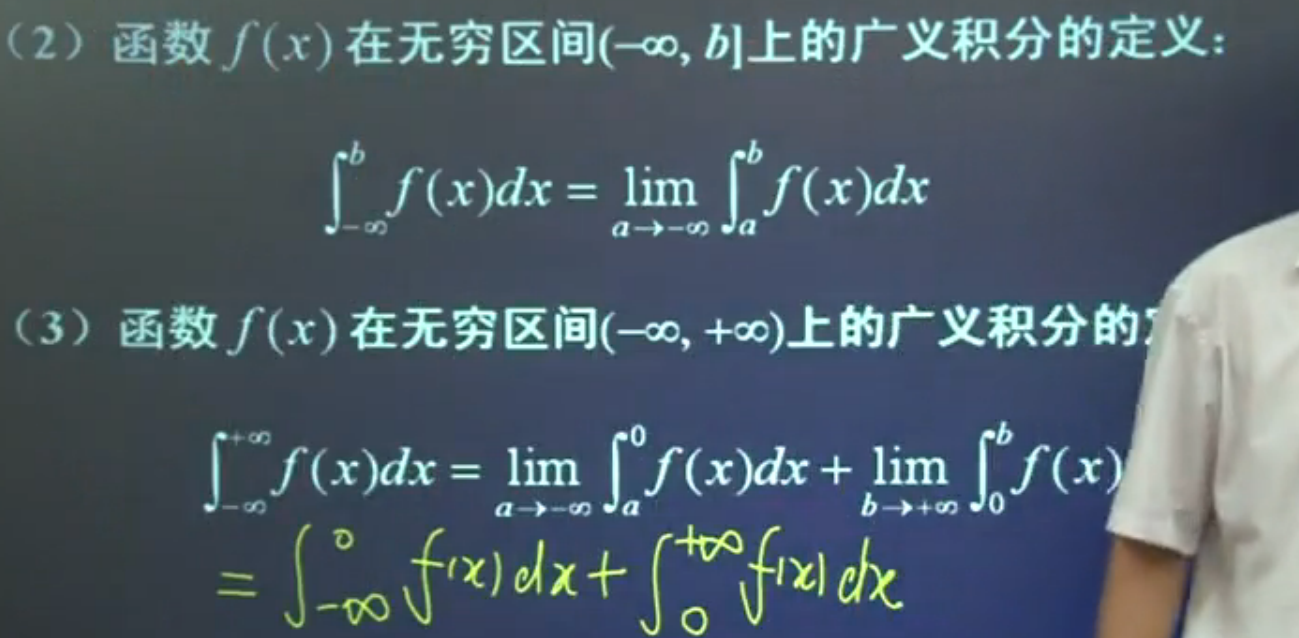 （2）函数 f(x) 在无穷区间(−∞, b]上的广义积分的定义：
∫_{−∞}^{b} f(x)dx = lim_{a→−∞} ∫_{a}^{b} f(x)dx
（3）函数 f(x) 在无穷区间(−∞, +∞)上的广义积分的
∫_{−∞}^{+∞} f(x)dx = lim_{a→−∞} ∫_{a}^{0} f(x)dx + lim_{b→+∞} ∫_{0}^{b} f(x)
= ∫_{−∞}^{0} f(x)dx + ∫_{0}^{+∞} f(x)dx